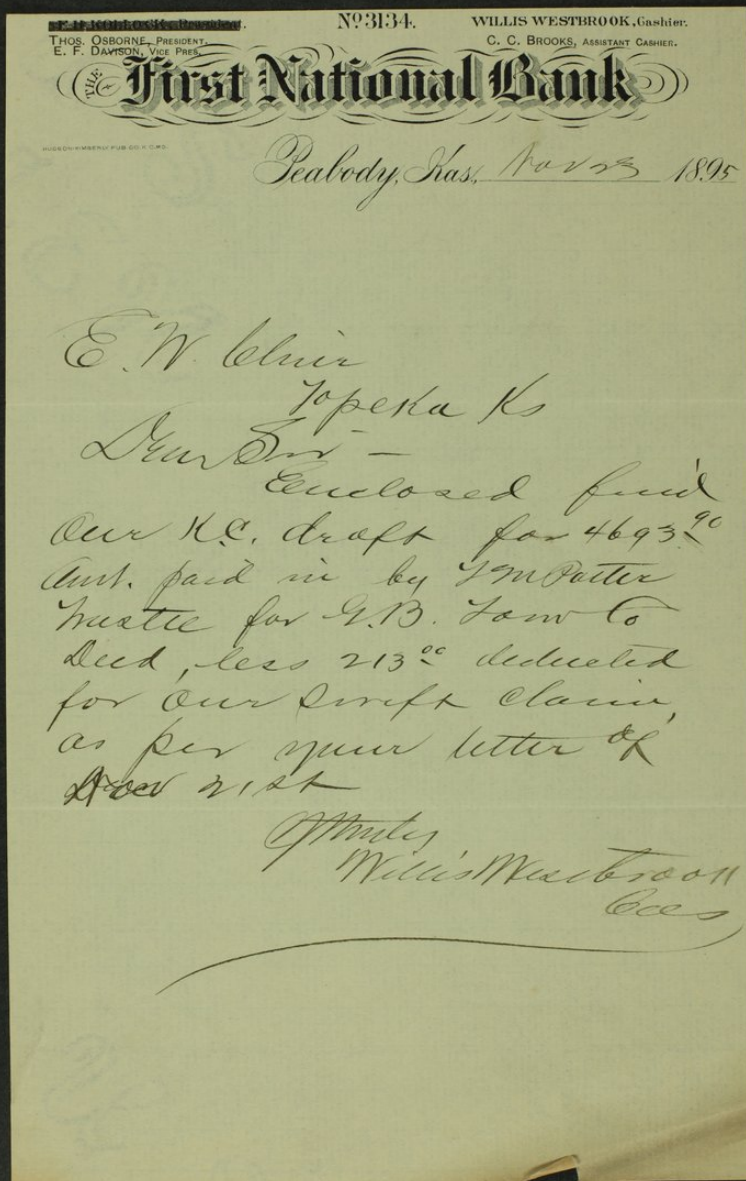 No. 3134.
WILLIS WESTBROOK, Cashier.
THOS. OSBORNE, PRESIDENT.
E. F. DAVISON, VICE PRES.
C. C. BROOKS, ASSISTANT CASHIER.
THE First National Bank
HUDSON-KIMBERLY PUB. CO. K.C. MO.
Peabody, Kas., Nov 23 1895
E. W.
Topeka Ks
Dear Sir —
Enclosed find
Our K.C. draft for 4693.90
Amt. paid in by Porter
Trustee for G.B.
Deed, less 213.00 deducted
for our Swift claim,
as per your letter of
Nov 21st
Yr truly
Willis Westbrook
Cas